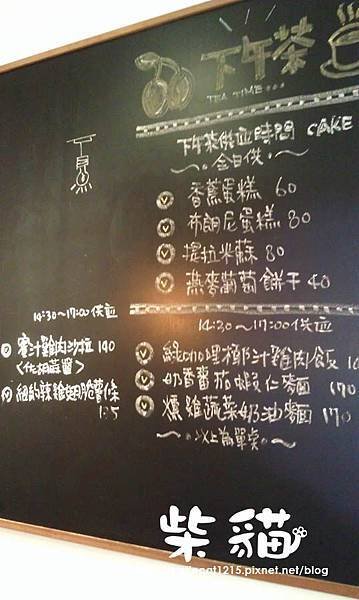 下午茶
TEA TIME...
下午茶供應時間 CAKE
~全日供~
香蕉蛋糕 60
布朗尼蛋糕 80
提拉米蘇 80
燕麥葡萄餅干 40
14:30~17:00供應
蜜汁雞肉沙拉 190
紐約辣雞翅脆薯條
125
14:30~17:00供應
綠咖哩椰汁雞肉飯
奶香蕃茄蝦仁麵 170
燻雞蔬菜奶油麵 170
~以上為單卖~
柴貓
at1215.pixnet.net/blog